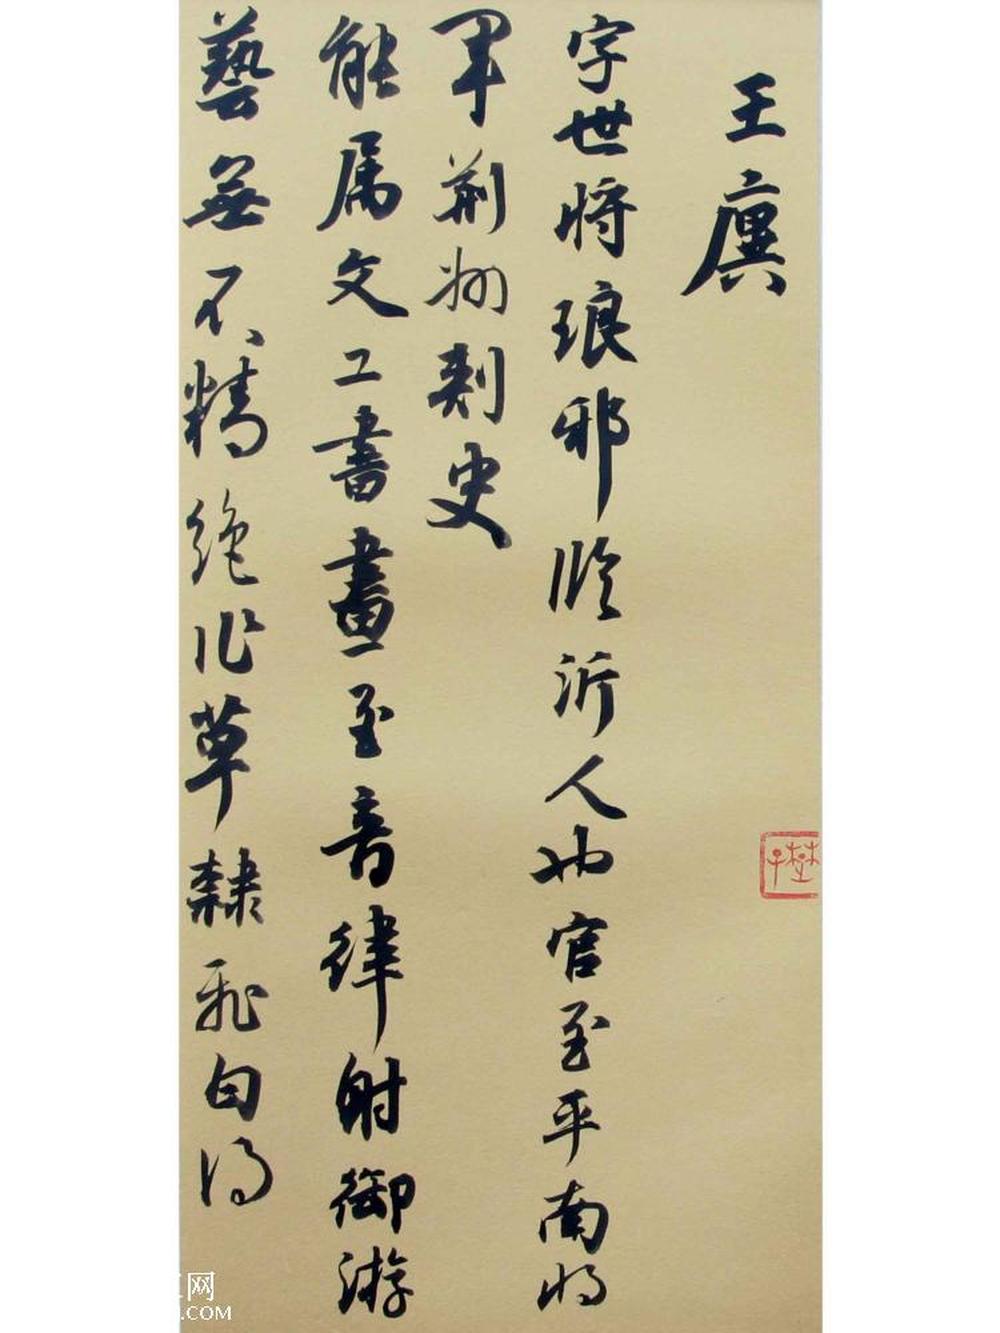 王廙
字世将琅邪临沂人也官至平南将
军荆州刺史
能属文工書畫至音律射御游
藝無不精絶作草隸飛白得
网
.COM